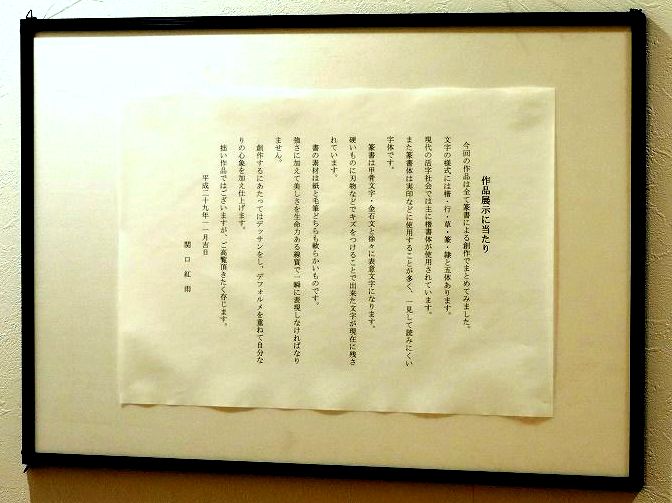 作品展示に当たり
今回の作品は全て篆書による創作でまとめてみました。
文字の様式には楷・行・草・篆・隷と五体あります。
現代の活字社会では主に楷書体が使用されています。
また篆書体は実印などに使用することが多く、一見して読みにくい
字体です。
篆書は甲骨文字・金石文と徐々に表意文字になります。
硬いものに刃物などでキズをつけることで出来た文字が現在に残さ
れています。
書の素材は紙と毛筆どちらも軟らかいものです。
強さに加えて美しさを生命力ある線質で一瞬に表現しなければなり
ません。
創作するにあたってはデッサンをし、デフォルメを重ねて自分な
りの心象を加え仕上げます。
拙い作品ではございますが、ご高覧頂きたく存じます。
平成二十九年 一一月吉日
関口紅雨